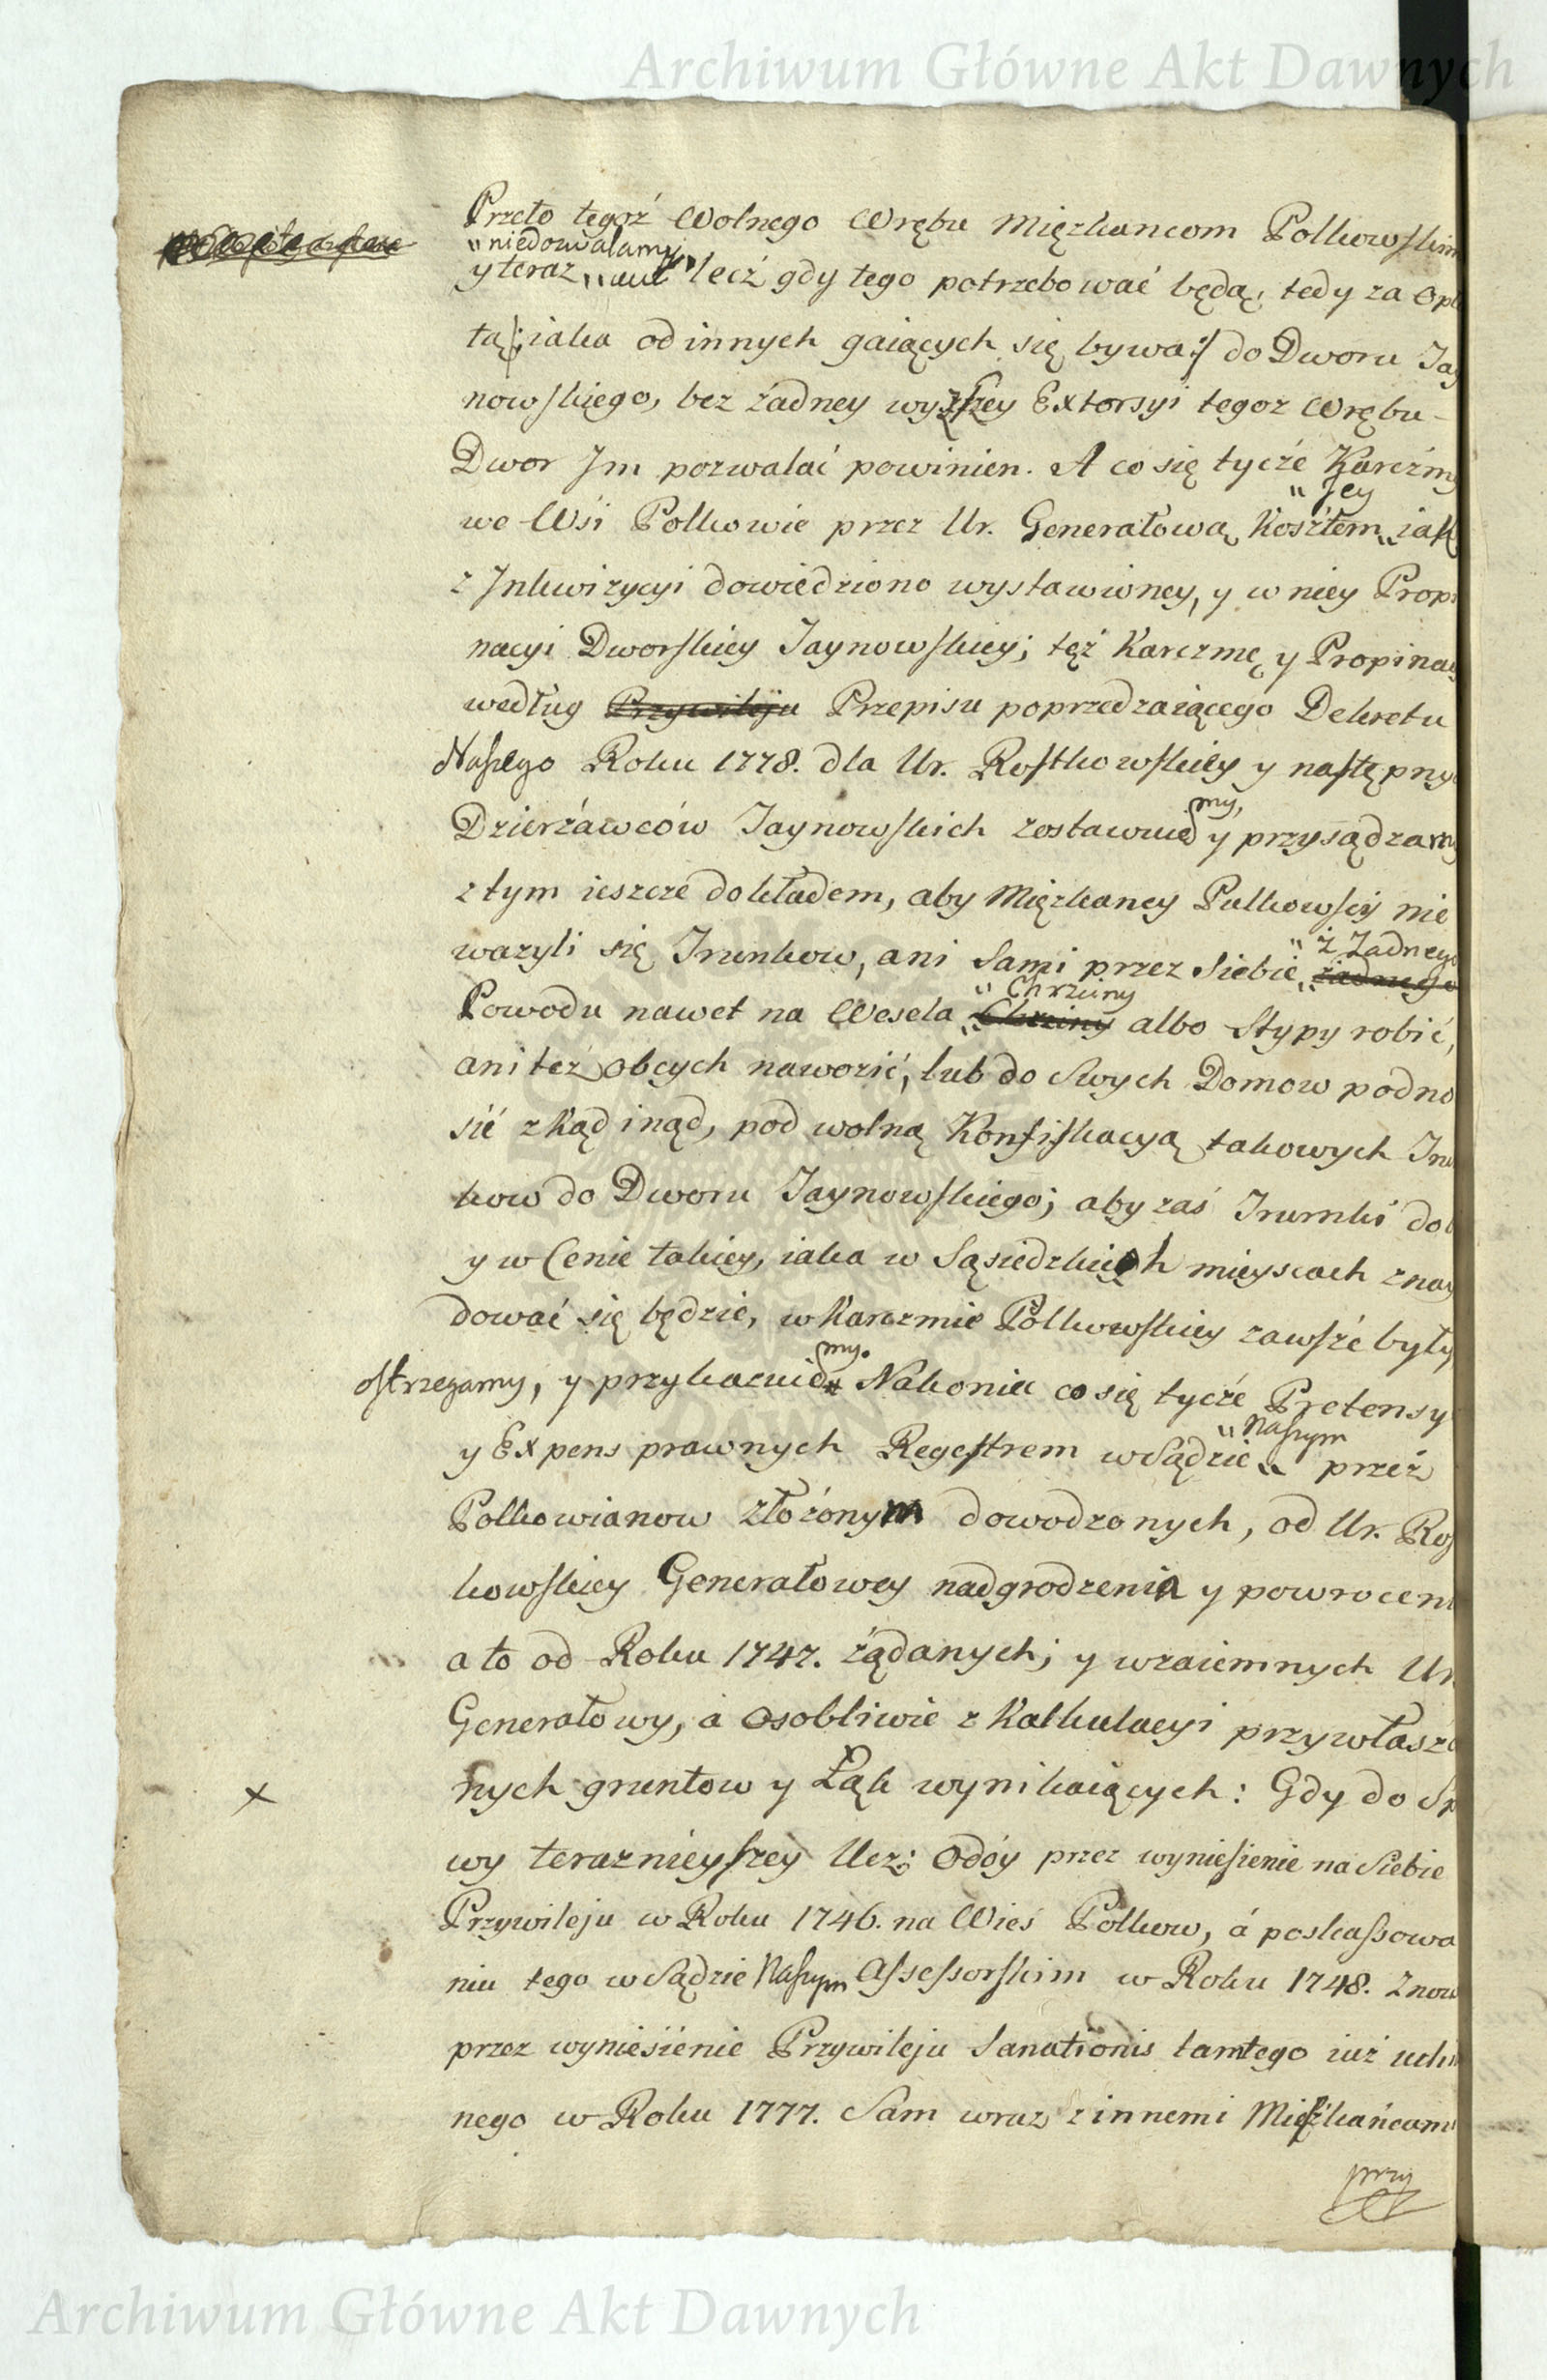 Archiwum Główne Akt Dawnych
Przeto tegoż Wolnego Wrębu Mięzkancom Polkowskim
"niedozwalamy
y teraz lecź gdy tego potrzebować będą, tedy za Opł
tą /: iaka od innych gaiących się bywa :/ do Dworu Jay
nowskiego, bez żadney wyższey Extorsyi tegoz Wrębu
Dwor Jm pozwalać powinien. A co się tycźe Karcźmy
"Jey
we Wśi Polkowie przez Ur. Generałową Kosźtem" iak
z Jnkwizycyi dowiedziono wystawioney, y w niey Propi
nacyi Dworskiey Jaynowskiey; tęż Karczmę y Propinac
według Przywileju Przepisu poprzedzaiącego Dekretu
Naszego Roku 1778. dla Ur. Rostkowskiey y następny
Dzierżawców Jaynowskich zostawuie y przysądzamy
my,
z tym ieszcze dokładem, aby Mięzkancy Pulkowscy nie
ważyli się Trunkow, ani Sami przez Siebie żadnego
"ż Żadnego
Powodu nawet na Wesela Chrzciny albo Stypy robić,
"Chrzciny
ani też obcych nawozić, lub do Swych Domow podno
sić zkąd inąd, pod wolną Konfiskacyą takowych Tru
kow do Dworu Jaynowskiego; aby zaś Trunki dob
y w Cenie takiey, iaka w Sąsiedzkich mieyscach znay
dować się będzie, w Karczmie Polkowskiey zawsźe były
ostrzegamy, y przykazuie Nakoniec co się tycźe Pretensy
my.
y Expens prawnych Regestrem w Sądzie" przeż
"Naszym
Polkowianow złożonym dowodzonych, od Ur. Ros
kowskiey Generałowey nadgrodzenia y powroceni
a to od Roku 1747. żądanych; y wzaiemnych Ur.
Generałowy, a osobliwie z Kalkulacyi przywłaszc
x
nych gruntow y Łąk wynikaiących: Gdy do Sp
wy teraznieyszey Ucz: Odóy przez wyniesienie na Siebie
Przywileju w Roku 1746. na Wieś Polkow, á poskassowa
niu tego w Sądzie Naszym Assessorskim w Roku 1748. Znow
przez wyniesienie Przywileju Sanationis tamtego iuż uchi
nego w Roku 1777. Sam wraz z innemi Mięźkańcami
przy
Archiwum Główne Akt Dawnych